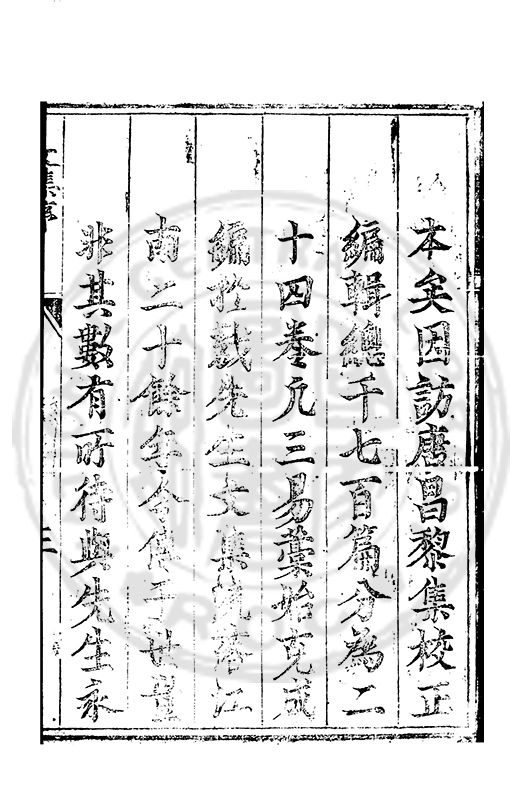 本矣因訪唐昌黎集校正
編輯總千七百篇分為二
十四卷凡三易藁始克成
編扵戲先生文集流落江
南二十餘年今傳于世豈
非其數有所待與先生永
文集序
三